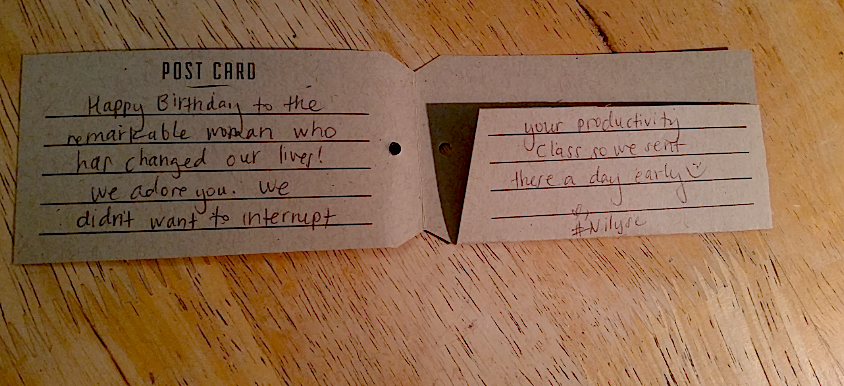 POST CARD
Happy Birthday to the
remarkable woman who
has changed our lives!
We adore you. We
didn't want to interrupt
your productivity
Class so we sent
there a day early